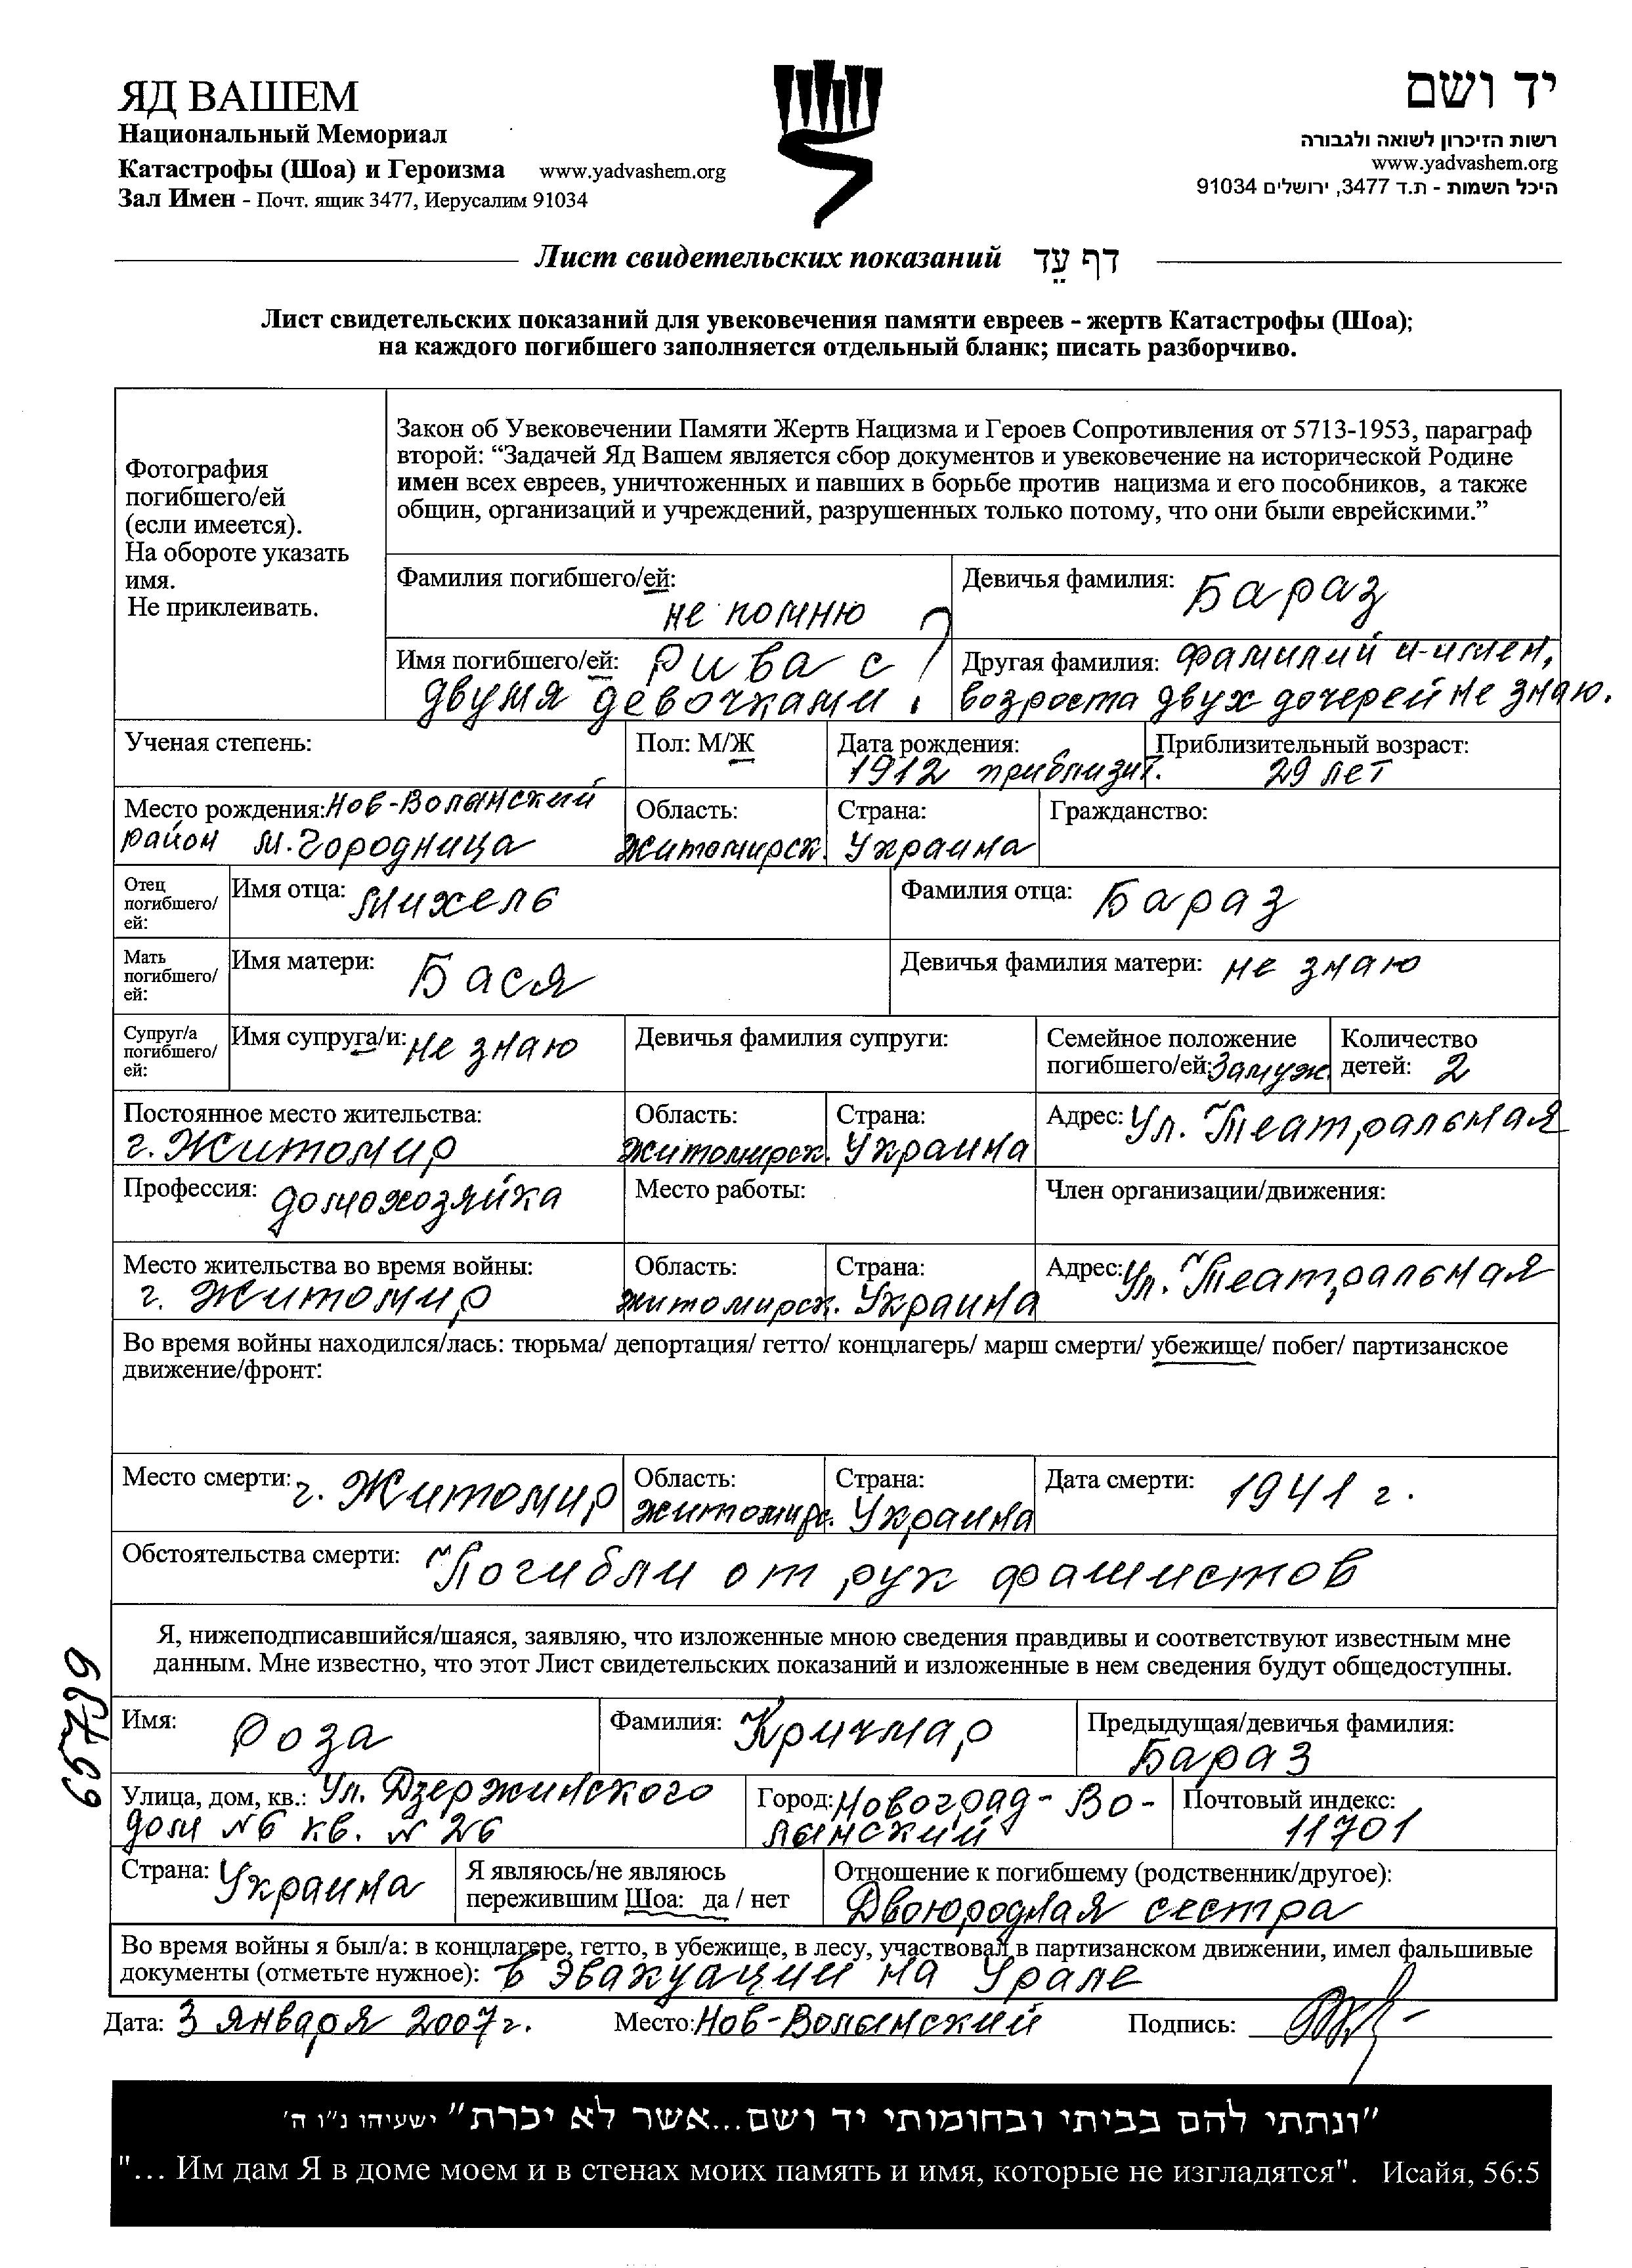 ЯД ВАШЕМ
Национальный Мемориал
Катастрофы (Шоа) и Героизма www.yadvashem.org
Зал Имен - Почт. ящик 3477, Иерусалим 91034
יד ושם
רשות הזיכרון לשואה ולגבורה
www.yadvashem.org
היכל השמות - ת.ד 3477, ירושלים 91034
Лист свидетельских показаний דף עֵד
Лист свидетельских показаний для увековечения памяти евреев - жертв Катастрофы (Шоа);
на каждого погибшего заполняется отдельный бланк; писать разборчиво.
Фотография
погибшего/ей
(если имеется).
На обороте указать
имя.
Не приклеивать.
Закон об Увековечении Памяти Жертв Нацизма и Героев Сопротивления от 5713-1953, параграф
второй: “Задачей Яд Вашем является сбор документов и увековечение на исторической Родине
имен всех евреев, уничтоженных и павших в борьбе против нацизма и его пособников, а также
общин, организаций и учреждений, разрушенных только потому, что они были еврейскими.”
Фамилия погибшего/ей: не помню
Девичья фамилия: Бараз
Имя погибшего/ей: Рива с
двумя девочками.
Другая фамилия: фамилий и имен,
возроста двух дочерей не знаю.
Ученая степень:
Пол: М/Ж
Дата рождения:
1912 приблизит.
Приблизительный возраст:
29 лет
Место рождения: Нов-Волынский
район м. Городница
Область:
Житомирск.
Страна:
Украина
Гражданство:
Отец
погибшего/
ей:
Имя отца: Михель
Фамилия отца: Бараз
Мать
погибшего/
ей:
Имя матери: Бася
Девичья фамилия матери: не знаю
Супруг/а
погибшего/
ей:
Имя супруга/и: не знаю
Девичья фамилия супруги:
Семейное положение
погибшего/ей: Замуж.
Количество
детей: 2
Постоянное место жительства:
г. Житомир
Область:
Житомирск.
Страна:
Украина
Адрес: Ул. Театральная
Профессия: домохозяйка
Место работы:
Член организации/движения:
Место жительства во время войны:
г. Житомир
Область:
житомирск.
Страна:
Украина
Адрес: Ул. Театральная
Во время войны находился/лась: тюрьма/ депортация/ гетто/ концлагерь/ марш смерти/ убежище/ побег/ партизанское
движение/фронт:
Место смерти: г. Житомир
Область:
житомирс.
Страна:
Украина
Дата смерти: 1941 г.
Обстоятельства смерти: Погибли от рук фашистов
Я, нижеподписавшийся/шаяся, заявляю, что изложенные мною сведения правдивы и соответствуют известным мне
данным. Мне известно, что этот Лист свидетельских показаний и изложенные в нем сведения будут общедоступны.
65799
Имя: Роза
Фамилия: Кричмар
Предыдущая/девичья фамилия:
Бараз
Улица, дом, кв.: Ул. Дзержинского
дом №6 кв. №26
Город: Новоград-Во-
лынский
Почтовый индекс:
11701
Страна: Украина
Я являюсь/не являюсь
пережившим Шоа: да / нет
Отношение к погибшему (родственник/другое):
Двоюродная сестра
Во время войны я был/а: в концлагере, гетто, в убежище, в лесу, участвовал в партизанском движении, имел фальшивые
документы (отметьте нужное): в эвакуации на Урале
Дата: 3 января 2007г. Место: Нов-Волынский Подпись:
"ונתתי להם בביתי ובחומותי יד ושם...אשר לא יכרת" ישעיהו נ"ו ה'
"... Им дам Я в доме моем и в стенах моих память и имя, которые не изгладятся". Исайя, 56:5